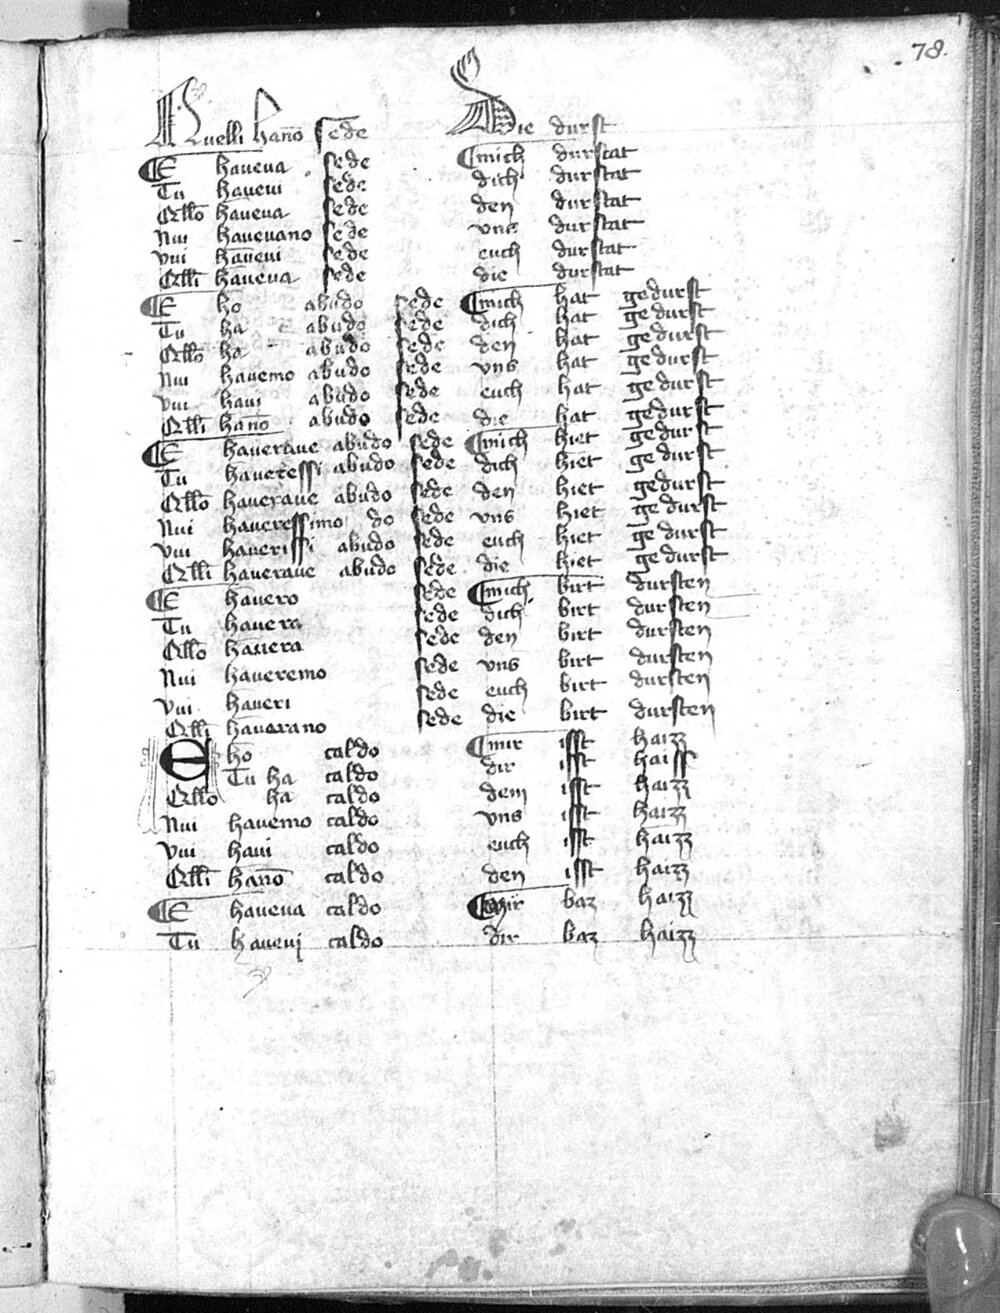 78.
Quelli hano sede Die durst
E haueua sede mich durstat
Tu haueui sede dich durstat
Qllo haueua sede den durstat
Nui haueuano sede vns durstat
vui haueui sede euch durstat
Qlli haueua sede die durstat
E ho abudo sede mich hat gedurst
Tu ha abudo sede dich hat gedurst
Qllo ha abudo sede den hat gedurst
Nui hauemo abudo sede vns hat gedurst
vui haui abudo sede euch hat gedurst
Qlli hano abudo sede die hat gedurst
E haueraue abudo sede mich hiet gedurst
Tu haueressi abudo sede dich hiet gedurst
Qllo haueraue abudo sede den hiet gedurst
Nui haueressimo do sede vns hiet gedurst
vui hauerissi abudo sede euch hiet gedurst
Qlli haueraue abudo sede die hiet gedurst
E hauero sede mich birt dursten
Tu hauera sede dich birt dursten
Qllo hauera sede den birt dursten
Nui haueremo sede vns birt dursten
vui haueri sede euch birt dursten
Qlli hauerano sede die birt dursten
E ho caldo mir isst haizz
Tu ha caldo dir isst haiss
Qllo ha caldo dem isst haizz
Nui hauemo caldo vns isst haizz
vui haui caldo euch isst haizz
Qlli hano caldo den isst haizz
E haueua caldo mir baz haizz
Tu haueuj caldo dir baz haizz